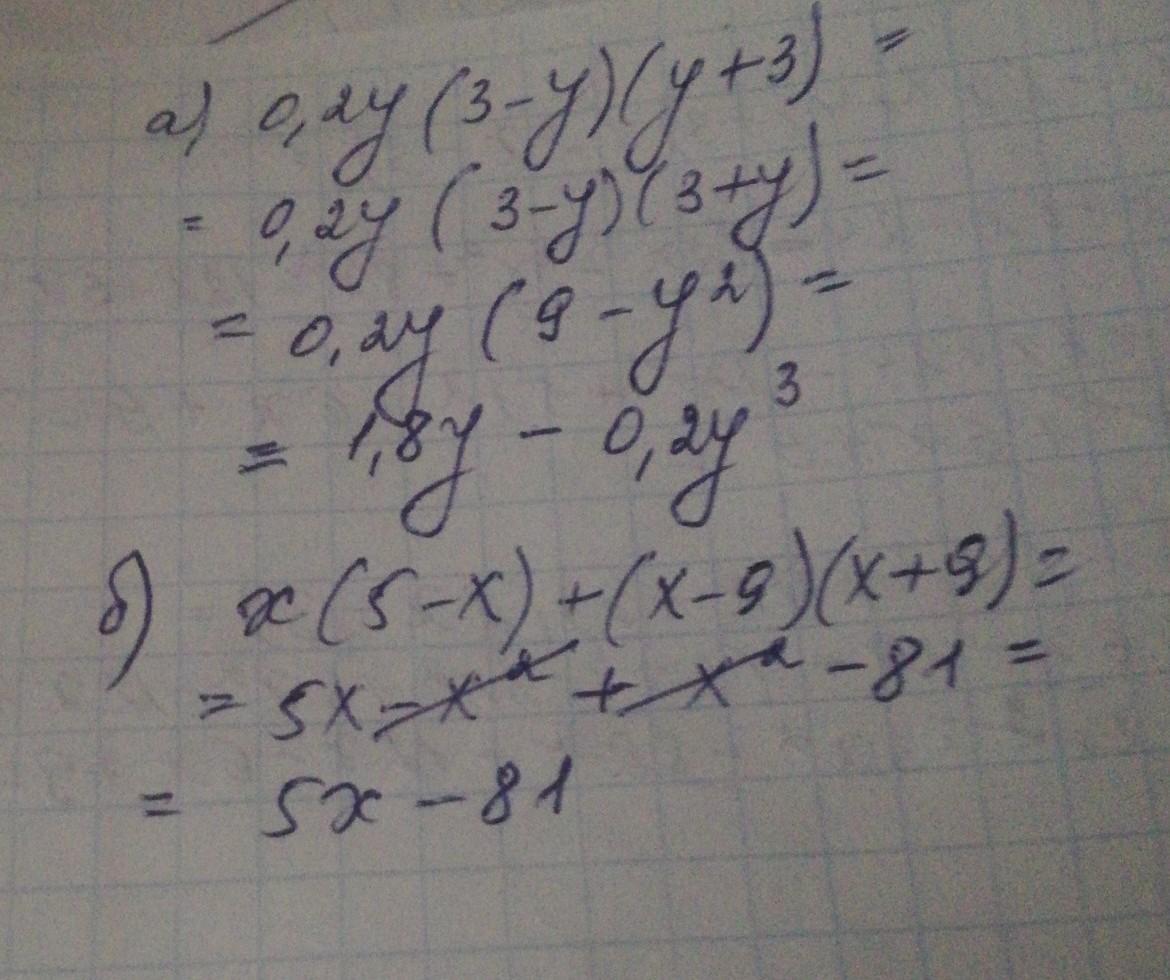 а) 0,2y (3-y)(y+3) =
= 0,2y (3-y)(3+y) =
= 0,2y (9 - y²) =
= 1,8y - 0,2y³
б) x(5-x)+(x-9)(x+9)=
= 5x-x²+x²-81 =
= 5x-81